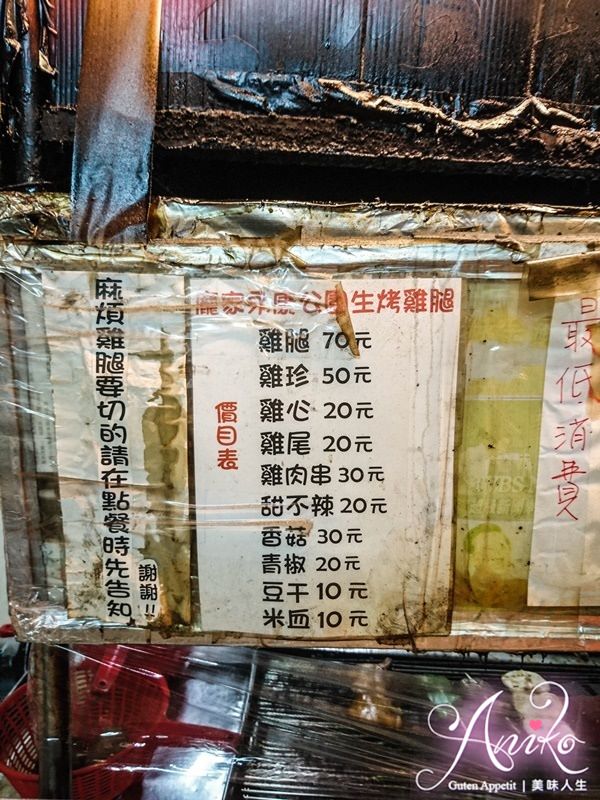 麻煩雞腿要切的請在點餐時先告知
謝謝!!
龐家永康公園生烤雞腿
價目表
雞腿 70元
雞珍 50元
雞心 20元
雞尾 20元
雞肉串 30元
甜不辣 20元
香菇 30元
青椒 20元
豆干 10元
米血 10元
最低消費
Aniko
Guten Appetit | 美味人生